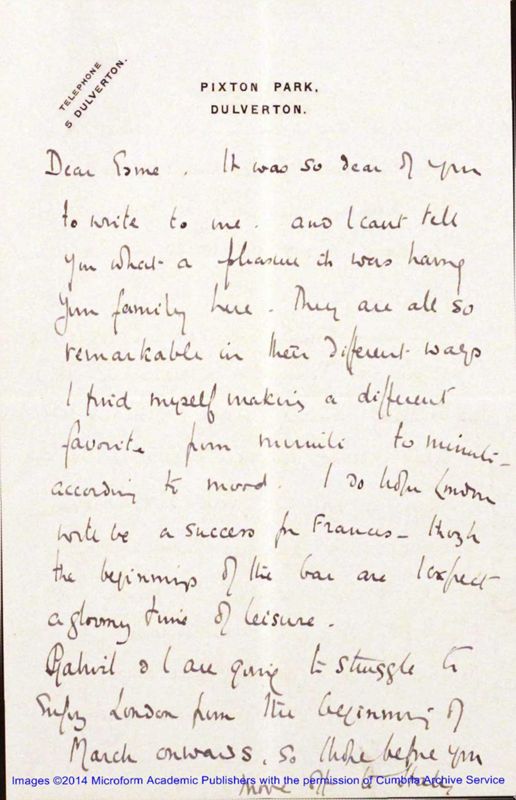 TELEPHONE
5 DULVERTON.
PIXTON PARK,
DULVERTON.
Dear Esme. It was so dear of you
to write to me. and I cant tell
you what a pleasure it was having
your family here. They are all so
remarkable in their different ways
I find myself making a different
favorite from minute to minute -
according to mood. I do hope London
will be a success for Francis - though
the beginnings of the bar are I expect
a gloomy time of leisure.
& I are going to struggle to
enjoy London from the beginning of
March onwards, so hope before you
move off to
Images ©2014 Microform Academic Publishers with the permission of Cumbria Archive Service